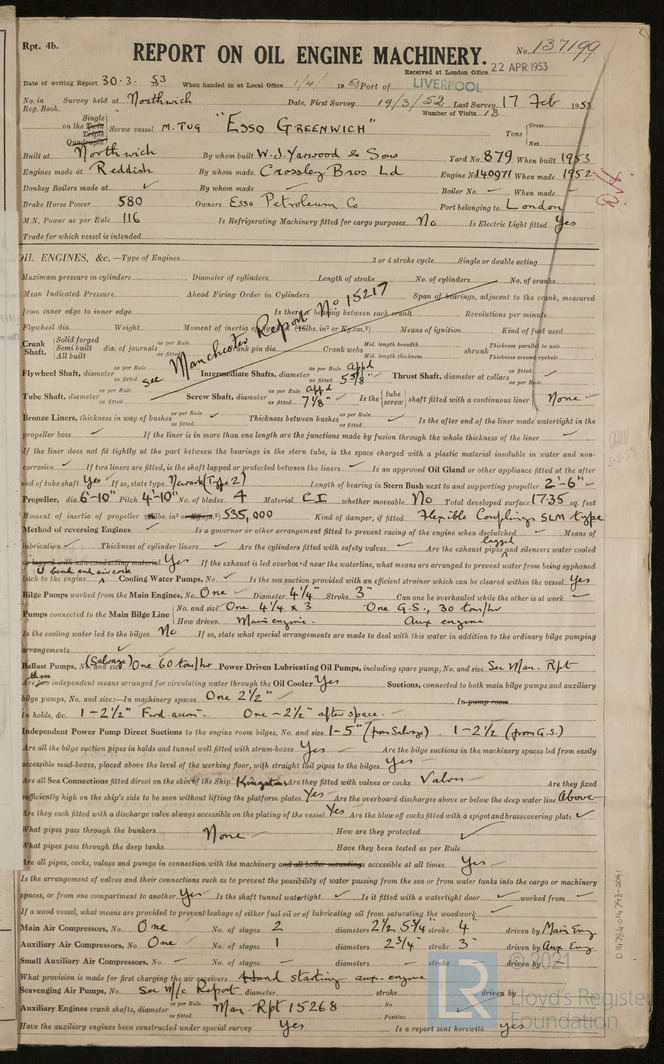 Rpt. 4b.
REPORT ON OIL ENGINE MACHINERY. No. 137199
Received at London Office 22 APR 1953
Date of writing Report 30.3.53 When handed in at Local Office 1/4/ 1953 Port of LIVERPOOL
No. in Reg. Book. Survey held at Northwich Date, First Survey 19/3/52 Last Survey 17 Feb 1953
Number of Visits 18
on the Single Twin Triple Quadruple Screw vessel M. TUG "ESSO GREENWICH" Tons Gross Net
Built at Northwich By whom built W.J. Yarwood & Sons Yard No. 879 When built 1953
Engines made at Reddish By whom made Crossley Bros Ltd Engine No. 140971 When made 1952
Donkey Boilers made at ✓ By whom made — Boiler No. — When made —
Brake Horse Power 580 Owners Esso Petroleum Co Port belonging to London
M.N. Power as per Rule 116 Is Refrigerating Machinery fitted for cargo purposes. No Is Electric Light fitted Yes
Trade for which vessel is intended
OIL ENGINES, &c.—Type of Engines 2 or 4 stroke cycle Single or double acting
Maximum pressure in cylinders Diameter of cylinders Length of stroke No. of cylinders No. of cranks
Mean Indicated Pressure Ahead Firing Order in Cylinders Span of bearings, adjacent to the crank, measured
from inner edge to inner edge Is there a bearing between each crank Revolutions per minute
Flywheel dia. Weight Moment of inertia of flywheel (16lbs. in² or Kg.cm.²) Means of ignition Kind of fuel used
see Manchester Report No 15217
Crank Shaft, Solid forged Semi built All built dia. of journals as per Rule as fitted Crank pin dia. Crank webs Mid. length breadth Mid. length thickness shrunk Thickness parallel to axis Thickness around eyehole
Flywheel Shaft, diameter as per Rule as fitted Intermediate Shafts, diameter as per Rule app'd as fitted 5 5/8" Thrust Shaft, diameter at collars as per Rule as fitted
Tube Shaft, diameter as per Rule as fitted Screw Shaft, diameter as per Rule app'd as fitted 7 1/8" Is the tube screw shaft fitted with a continuous liner None
Bronze Liners, thickness in way of bushes as per Rule as fitted Thickness between bushes as per Rule as fitted Is the after end of the liner made watertight in the
propeller boss ✓ If the liner is in more than one length are the junctions made by fusion through the whole thickness of the liner
If the liner does not fit tightly at the part between the bearings in the stern tube, is the space charged with a plastic material insoluble in water and non-
corrosive ✓ If two liners are fitted, is the shaft lapped or protected between the liners ✓ Is an approved Oil Gland or other appliance fitted at the after
end of tube shaft Yes If so, state type Newark (Type 2) Length of bearing in Stern Bush next to and supporting propeller 2'-6"
Propeller, dia. 6'-10" Pitch 4'-10" No. of blades 4 Material C I whether moveable No Total developed surface 17.35 sq. feet
Moment of inertia of propeller (16lbs. in² or Kg.cm.²) 535,000 Kind of damper, if fitted Flexible Couplings SLM type
Method of reversing Engines ✓ Is a governor or other arrangement fitted to prevent racing of the engine when declutched Means of
lubrication Thickness of cylinder liners Are the cylinders fitted with safety valves Are the exhaust pipes and silencers water cooled
lagged
or lagged with non-conducting material Yes If the exhaust is led overboard near the waterline, what means are arranged to prevent water from being syphoned
U bend and air cock
back to the engine Cooling Water Pumps, No. ✓ Is the sea suction provided with an efficient strainer which can be cleared within the vessel. Yes
Bilge Pumps worked from the Main Engines, No. One Diameter 4 1/4" Stroke 3" Can one be overhauled while the other is at work —
Pumps connected to the Main Bilge Line No. and size One 4 1/4 x 3 One G.S., 30 tons/hr
How driven Main engine. Aux engine
Is the cooling water led to the bilges No If so, state what special arrangements are made to deal with this water in addition to the ordinary bilge pumping
arrangements
Ballast Pumps, No. and size (Salvage) One 60 tons/hr Power Driven Lubricating Oil Pumps, including spare pump, No. and size See Man. Rpt
Are three two independent means arranged for circulating water through the Oil Cooler Yes Suctions, connected to both main bilge pumps and auxiliary
bilge pumps, No. and size:—In machinery spaces One 2 1/2" In pump room
In holds, &c. 1 - 2 1/2" Fwd. accom. One - 2 1/2" after space.
Independent Power Pump Direct Suctions to the engine room bilges, No. and size 1-5" (from Salvage). 1-2 1/2 (from G.S.)
Are all the bilge suction pipes in holds and tunnel well fitted with strum-boxes. Yes Are the bilge suctions in the machinery spaces led from easily
accessible mud-boxes, placed above the level of the working floor, with straight tail pipes to the bilges. Yes
Are all Sea Connections fitted direct on the skin of the Ship Kingston Are they fitted with valves or cocks Valves Are they fixed
sufficiently high on the ship's side to be seen without lifting the platform plates Yes Are the overboard discharges above or below the deep water line Above
Are they each fitted with a discharge valve always accessible on the plating of the vessel Yes Are the blow off cocks fitted with a spigot and brass covering plate ✓
What pipes pass through the bunkers None How are they protected ✓
What pipes pass through the deep tanks Have they been tested as per Rule
Are all pipes, cocks, valves and pumps in connection with the machinery and all boiler mountings accessible at all times Yes
Is the arrangement of valves and their connections such as to prevent the possibility of water passing from the sea or from water tanks into the cargo or machinery
spaces, or from one compartment to another Yes Is the shaft tunnel watertight Is it fitted with a watertight door worked from
If a wood vessel, what means are provided to prevent leakage of either fuel oil or of lubricating oil from saturating the woodwork
Main Air Compressors, No. One No. of stages 2 diameters 2 1/2 5 3/4" stroke 4" driven by Main Eng
Auxiliary Air Compressors, No. One No. of stages 1 diameters 2 3/4" stroke 3" driven by Aux Eng
Small Auxiliary Air Compressors, No. — No. of stages — diameters — stroke — driven by
What provision is made for first charging the air receivers Hand starting aux. engine
Scavenging Air Pumps, No. See M/c Report diameter stroke driven by
Auxiliary Engines crank shafts, diameter as per Rule as fitted Man. Rpt 15268 No. Position
Have the auxiliary engines been constructed under special survey Yes Is a report sent herewith Yes
© 2021
LR Lloyd's Register Foundation